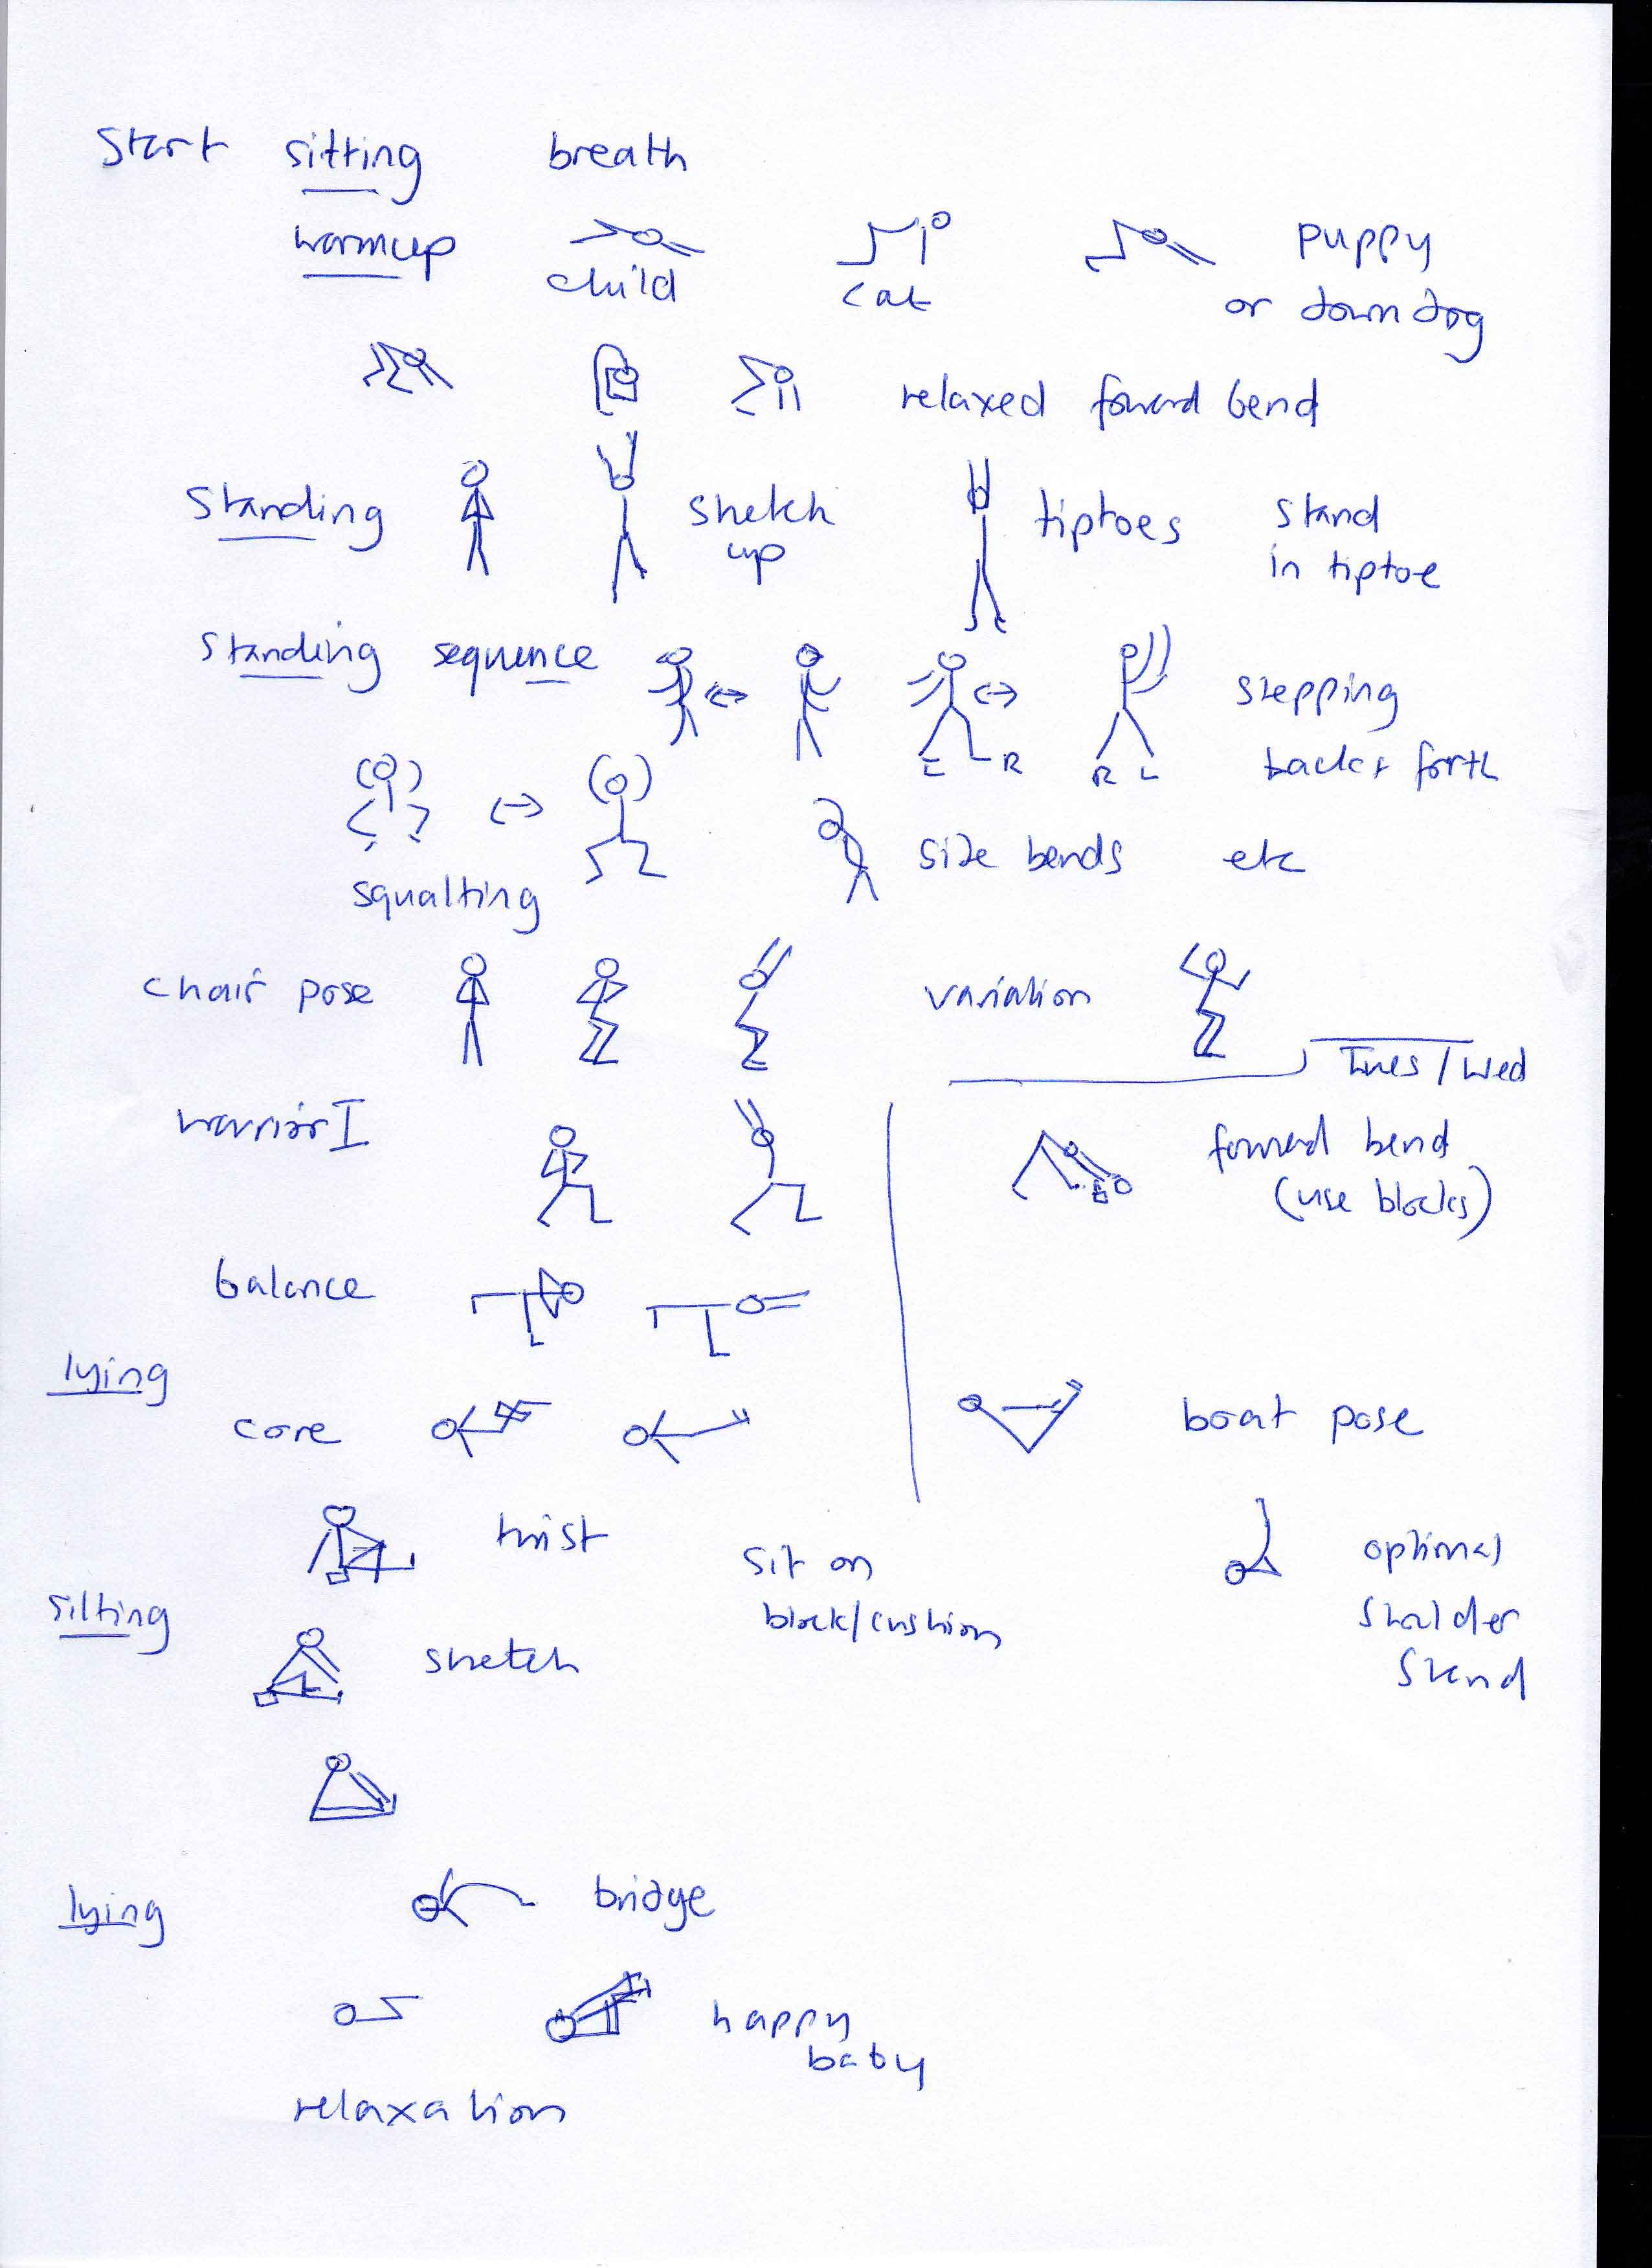 Start sitting breath
warmup
child
cat
puppy
or down dog
relaxed forward bend
Standing
stretch
up
tiptoes
stand
in tiptoe
Standing sequence
L R
R L
stepping
back & forth
squatting
side bends etc
chair pose
variation
Tues / Wed
warrior I
forward bend
(use blocks)
balance
lying
core
boat pose
twist
sit on
block/cushion
optional
shoulder
stand
sitting
stretch
lying
bridge
happy
baby
relaxation